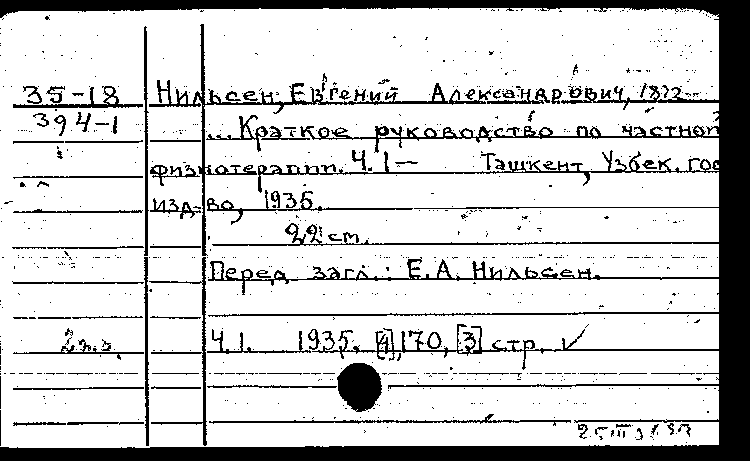 35-18 Нильсен, Евгений Александрович, 1872-
394-1 ... Краткое руководство по частной
физиотерапии. Ч.1— Ташкент, Узбек. гос
изд-во, 1935.
22 см.
Перед загл.: Е.А. Нильсен.
2 п.з. Ч.1. 1935. [4], 170, [3] стр. ✓